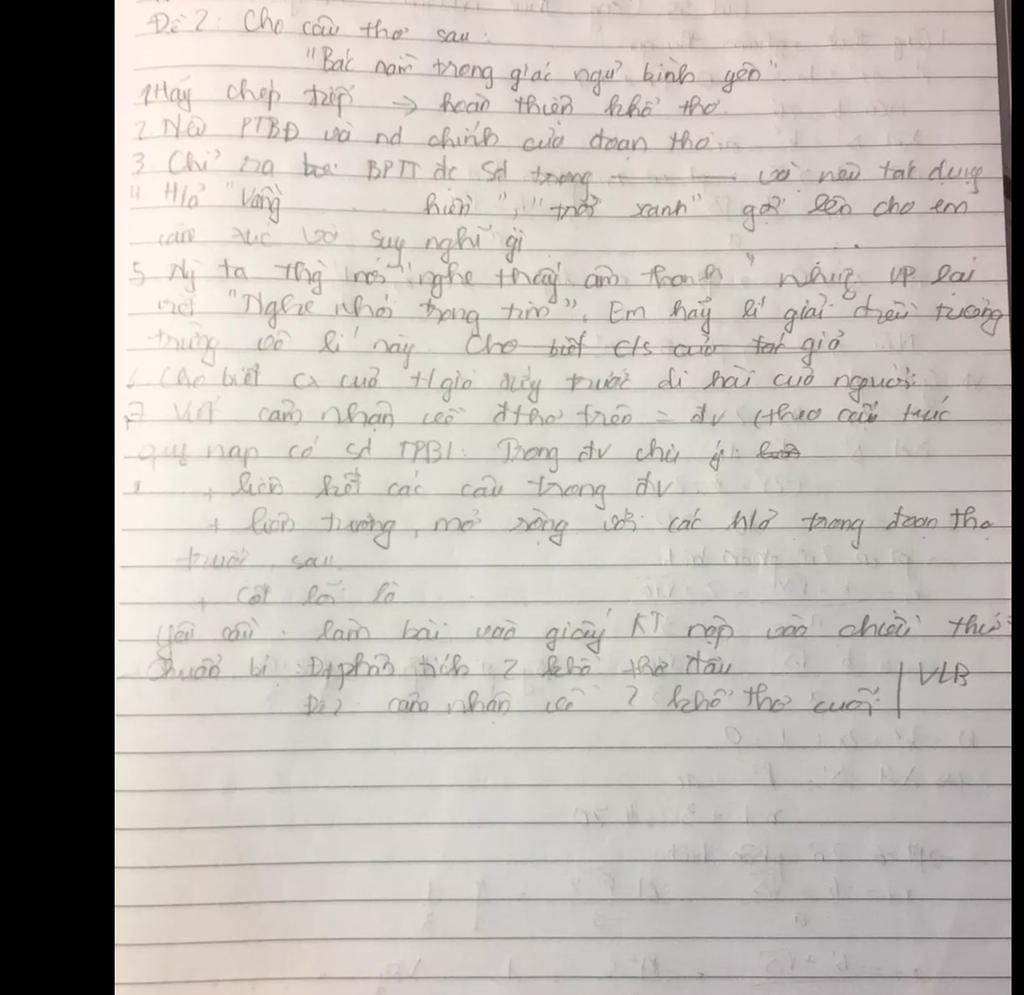 Đề 2: Cho câu thơ sau:
"Bác nằm trong giấc ngủ bình yên"
1 Hãy chép tiếp → hoàn thiện khổ thơ
2 Nêu PTBĐ và nd chính của đoạn thơ
3 Chỉ ra BPTT đc sd trong và nêu tác dụng
4 H/ả "Vầng hiền", "trời xanh" gợi lên cho em
cảm xúc và suy nghĩ gì
5 Ng ta thg nói "nghe thấy âm thanh" nhưng VP lại
viết "Nghe nhói trong tim". Em hãy lí giải điều tưởng
chừng vô lí này Cho biết c/s của tác giả
6. Cho biết cx của t/giả đứng trước di hài của người
7 Viết cảm nhận về đthơ trên = đv (theo cấu trúc
quy nạp có sd TPBL. Trong đv chú ý:
+ liên kết các câu trong đv
+ liên tưởng, mở rộng với các h/ả trong đoạn thơ
trước, sau
+ Cốt lõi là
Yêu cầu: làm bài vào giấy KT nộp vào chiều thứ
Chuẩn bị: Đ1 phân tích 2 khổ thơ đầu
Đề 2 cảm nhận về 2 khổ thơ cuối
VLB